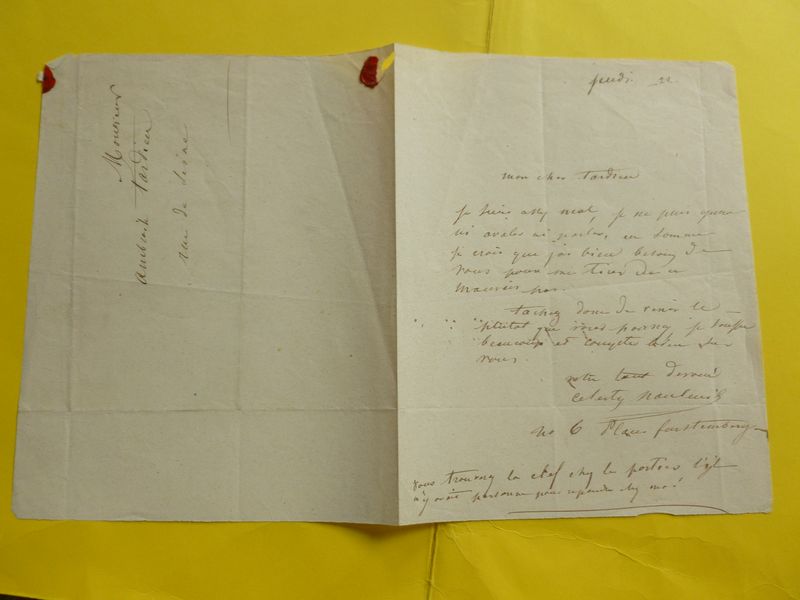 Monsieur
ambroise tardieu
rue de Seine
jeudi 22
mon cher tardieu
je suis assez mal, je ne puis
ni avaler ni parler, en somme
je crois que j'ai bien besoin de
vous pour me tirer de ce
mauvais pas.
tachez donc de venir le
plutot que vous pourrez je souffre
beaucoup et compte bien sur
vous.
votre tout devoué
celestin nanteuil
no 6 Place furstemberg
vous trouverez la clef chez le portier s'il
n'y avait personne pour repondre chez moi